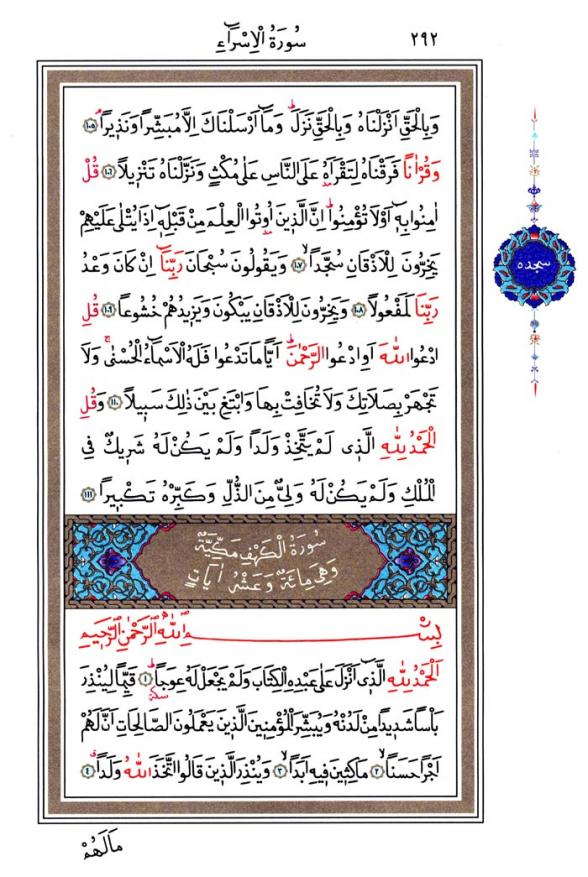 سُورَةُ الْاِسْرَاءِ ٢٩٢
وَبِالْحَقِّ اَنْزَلْنَاهُ وَبِالْحَقِّ نَزَلَ وَمَٓا اَرْسَلْنَاكَ اِلَّا مُبَشِّرًا وَنَذ۪يرًا ١٠٥
وَقُرْاٰنًا فَرَقْنَاهُ لِتَقْرَاَهُ عَلَى النَّاسِ عَلٰى مُكْثٍ وَنَزَّلْنَاهُ تَنْز۪يلًا ١٠٦ قُلْ
اٰمِنُوا بِه۪ٓ اَوْ لَا تُؤْمِنُوا اِنَّ الَّذ۪ينَ اُو۫تُوا الْعِلْمَ مِنْ قَبْلِه۪ٓ اِذَا يُتْلٰى عَلَيْهِمْ
يَخِرُّونَ لِلْاَذْقَانِ سُجَّدًا ١٠٧ وَيَقُولُونَ سُبْحَانَ رَبِّنَٓا اِنْ كَانَ وَعْدُ
سجده
رَبِّنَا لَمَفْعُولًا ١٠٨ وَيَخِرُّونَ لِلْاَذْقَانِ يَبْكُونَ وَيَز۪يدُهُمْ خُشُوعًا ١٠٩ قُلِ
ادْعُوا اللّٰهَ اَوِ ادْعُوا الرَّحْمٰنَ اَيًّا مَا تَدْعُوا فَلَهُ الْاَسْمَٓاءُ الْحُسْنٰى وَلَا
تَجْهَرْ بِصَلَاتِكَ وَلَا تُخَافِتْ بِهَا وَابْتَغِ بَيْنَ ذٰلِكَ سَب۪يلًا ١١٠ وَقُلِ
الْحَمْدُ لِلّٰهِ الَّذ۪ي لَمْ يَتَّخِذْ وَلَدًا وَلَمْ يَكُنْ لَهُ شَر۪يكٌ فِي
الْمُلْكِ وَلَمْ يَكُنْ لَهُ وَلِيٌّ مِنَ الذُّلِّ وَكَبِّرْهُ تَكْب۪يرًا ١١١
سُورَةُ الْكَهْفِ مَكِّيَّةٌ
وَهِيَ مِائَةٌ وَعَشْرُ اٰيَاتٍ
بِسْمِ اللّٰهِ الرَّحْمٰنِ الرَّح۪يمِ
اَلْحَمْدُ لِلّٰهِ الَّذ۪ٓي اَنْزَلَ عَلٰى عَبْدِهِ الْكِتَابَ وَلَمْ يَجْعَلْ لَهُ عِوَجًا ١ قَيِّمًا لِيُنْذِرَ
بَاْسًا شَد۪يدًا مِنْ لَدُنْهُ وَيُبَشِّرَ الْمُؤْمِن۪ينَ الَّذ۪ينَ يَعْمَلُونَ الصَّالِحَاتِ اَنَّ لَهُمْ
اَجْرًا حَسَنًا ٢ مَاكِث۪ينَ ف۪يهِ اَبَدًا ٣ وَيُنْذِرَ الَّذ۪ينَ قَالُوا اتَّخَذَ اللّٰهُ وَلَدًا ٤
مَا لَهُمْ